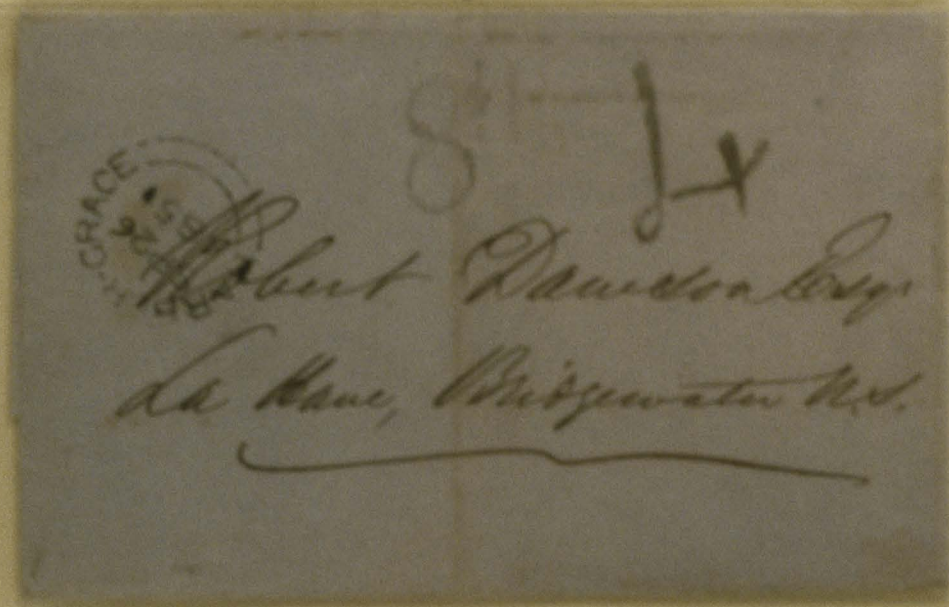 8
1/4
GRACE
26
51
Robert Dawson Esqr
La Have, Bridgewater N.S.